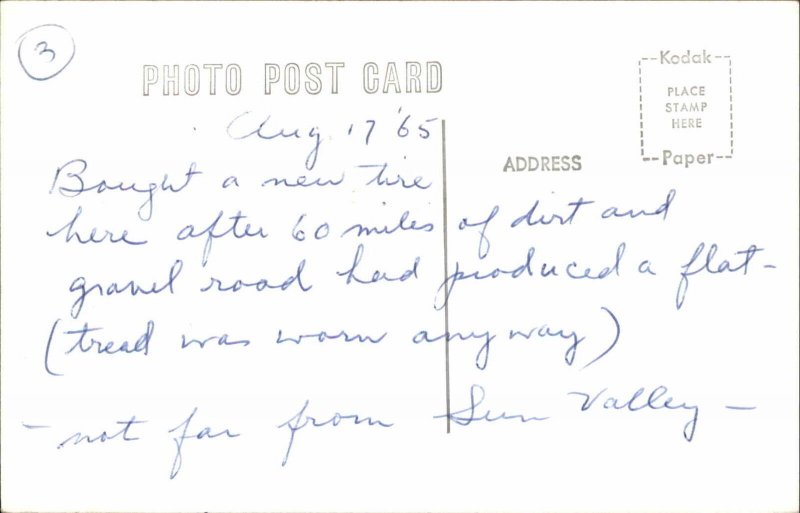 3
PHOTO POST CARD
--Kodak--
PLACE
STAMP
HERE
--Paper--
ADDRESS
Aug 17 '65
Bought a new tire
here after 60 miles of dirt and
gravel road had produced a flat-
(tread was worn anyway)
- not far from Sun Valley -